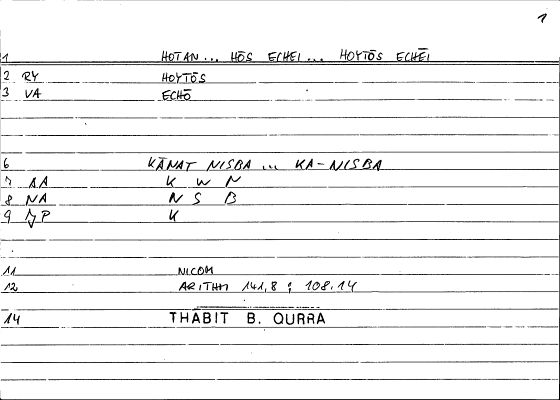 1
1 HOTAN... HŌS ECHEI... HOYTŌS ECHĒI
2 RY HOYTŌS
3 VA ECHŌ
6 KĀNAT NISBA ... KA-NISBA
7 AA K W N
8 NA N S B
9 P K
11 NICOM
12 ARITHM 141,8 ; 108.14
14 THĀBIT B. QURRA